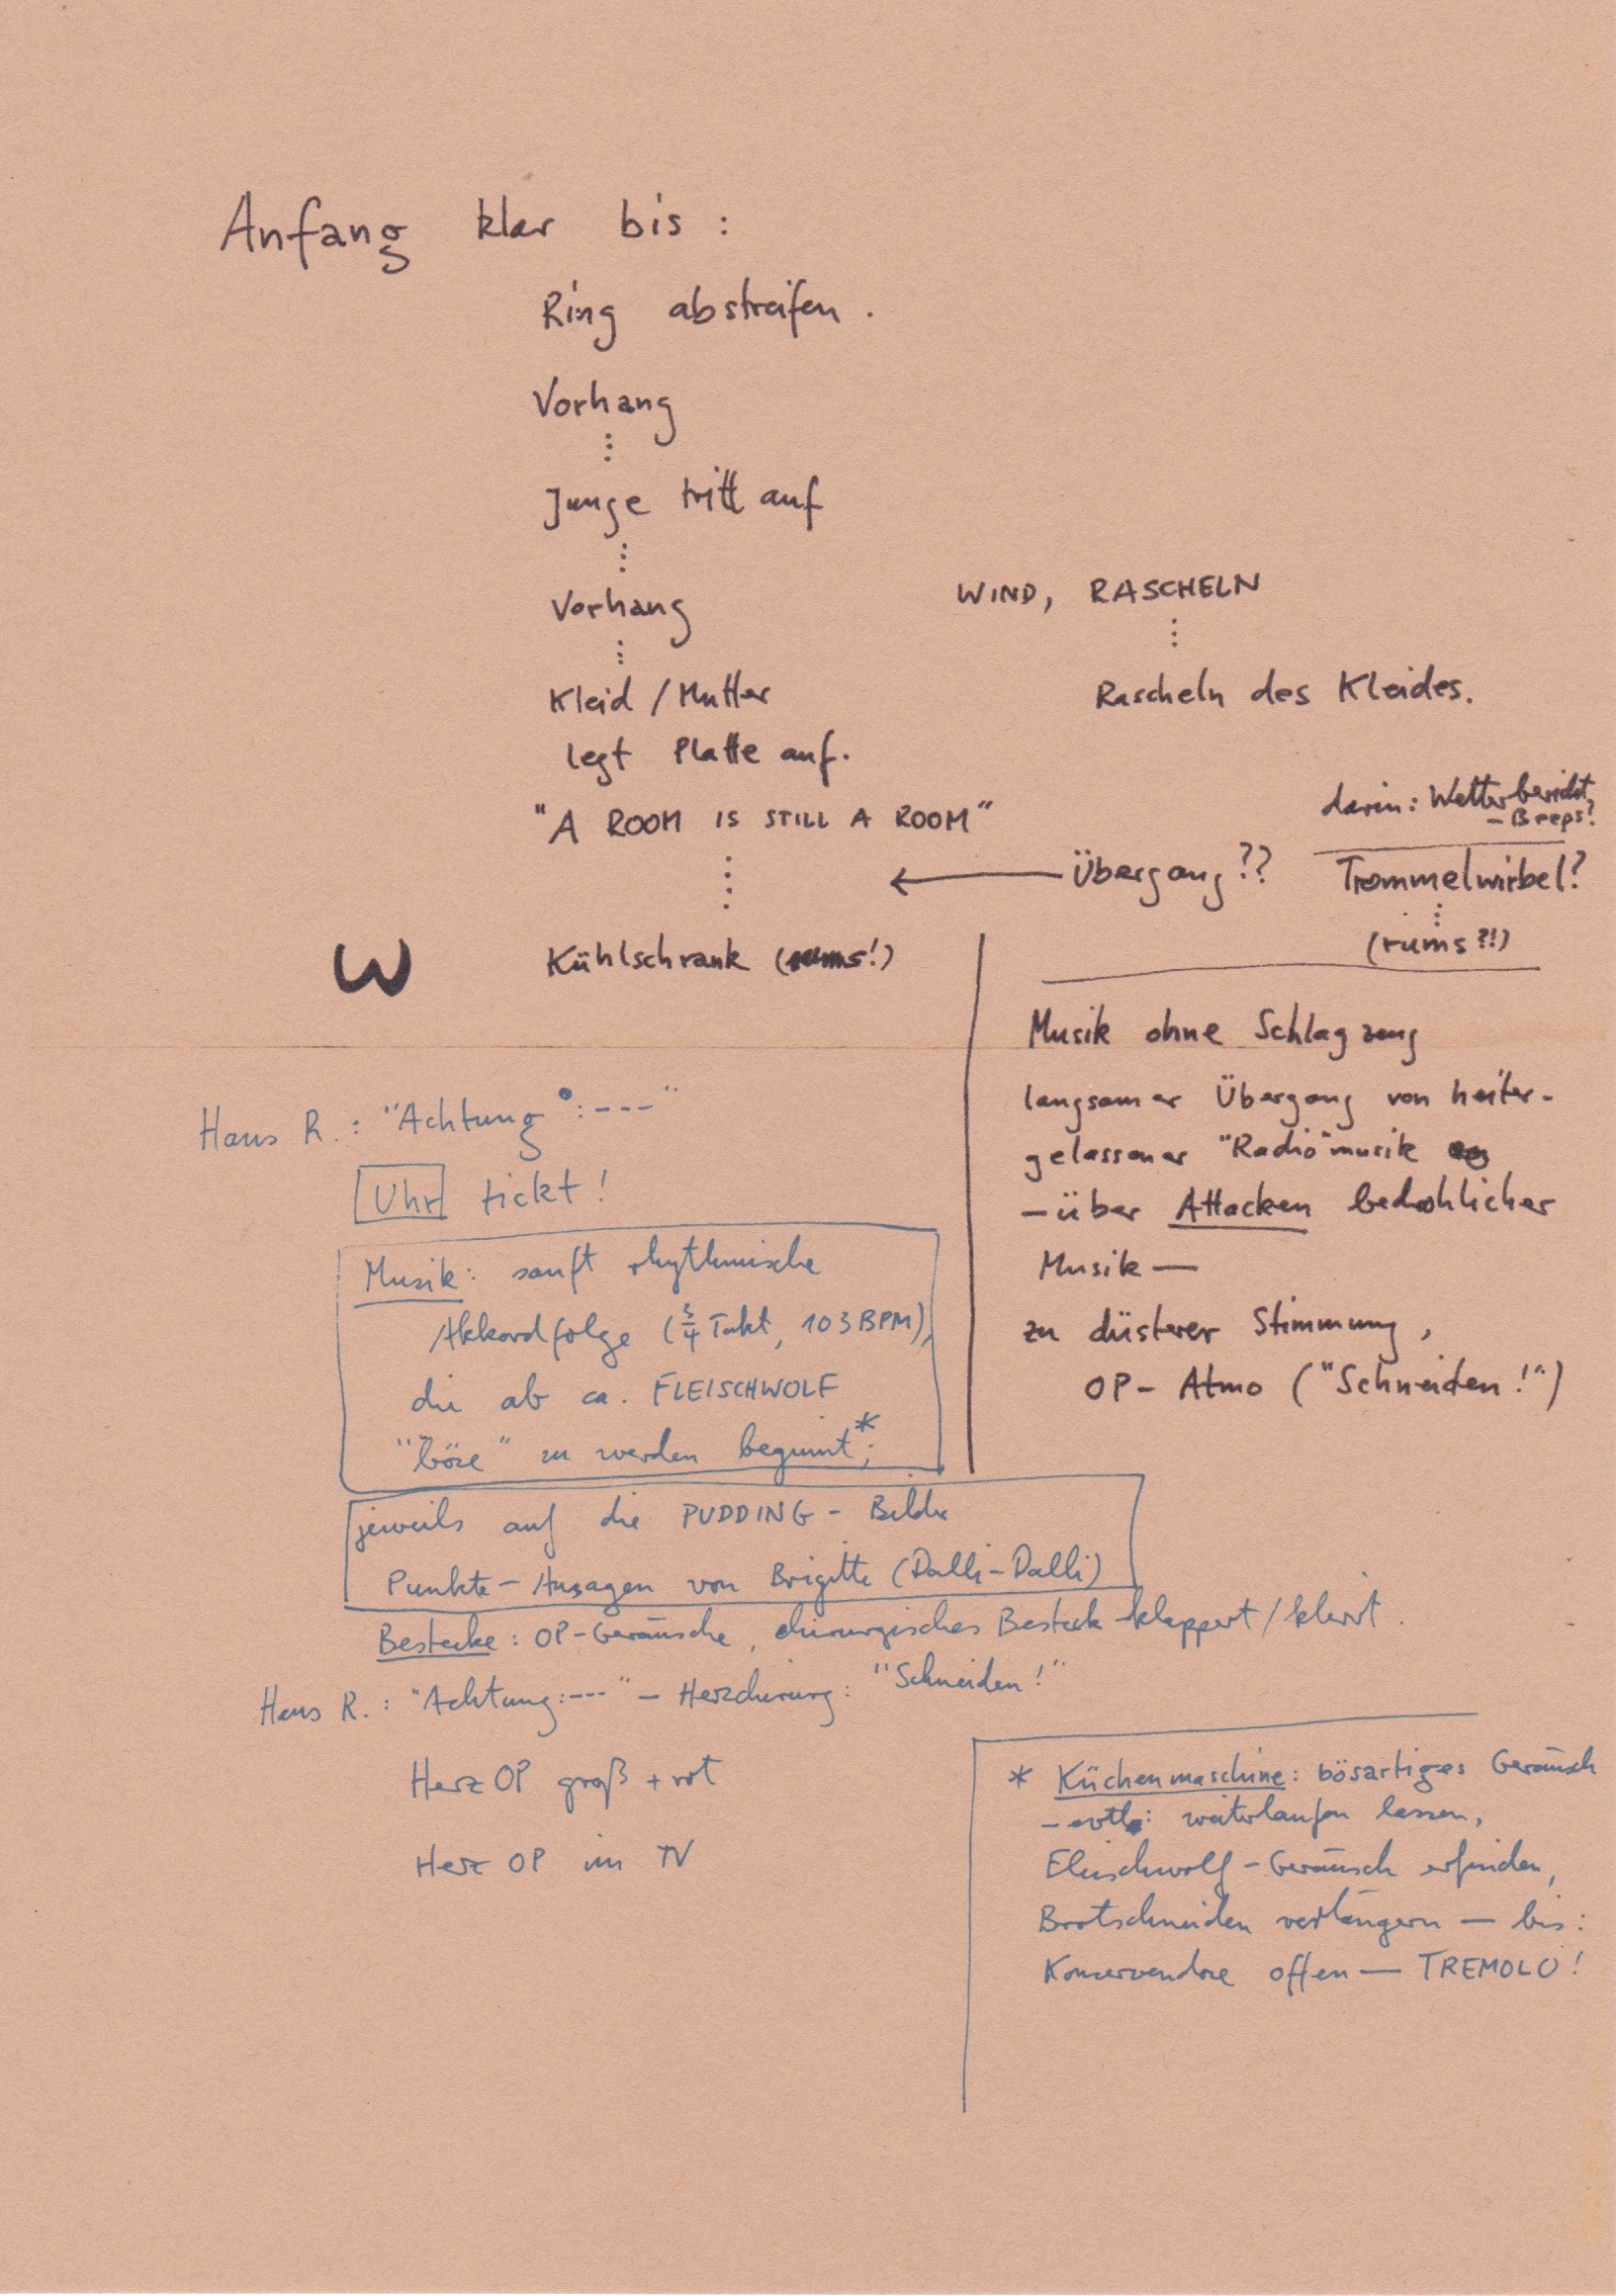 Anfang klar bis :
Ring abstreifen .
Vorhang
⋮
Junge tritt auf
⋮
Vorhang
⋮
Kleid / Mutter
legt Platte auf.
"A ROOM IS STILL A ROOM"
⋮
W Kühlschrank (rums!)
WIND, RASCHELN
⋮
Rascheln des Kleides.
darin: Wetterbericht
- Beeps?
← Übergang?? Trommelwirbel?
⋮
(rums?!)
Musik ohne Schlagzeug
langsamer Übergang von heiter-
gelassener "Radio"musik
- über Attacken bedrohlicher
Musik —
zu düsterer Stimmung,
OP- Atmo ("Schneiden!")
Hans R. : "Achtung : ---"
Uhr tickt!
Musik: sanft rhythmische
Akkordfolge (3/4 Takt, 103 BPM),
die ab ca. FLEISCHWOLF
"böse" zu werden beginnt*;
jeweils auf die PUDDING - Bilder
Punkte - Ansagen von Brigitte (Dalli-Dalli)
Bestecke: OP-Geräusche, chirurgisches Besteck klappert/klirrt.
Hans R. : "Achtung: ---" - Herzchirurg: "Schneiden!"
Herz OP groß + rot
Herz OP im TV
* Küchenmaschine: bösartiges Geräusch
- evtl.: weiterlaufen lassen,
Fleischwolf - Geräusch erfinden,
Brotschneiden verlängern — bis:
Konservendose offen — TREMOLO!